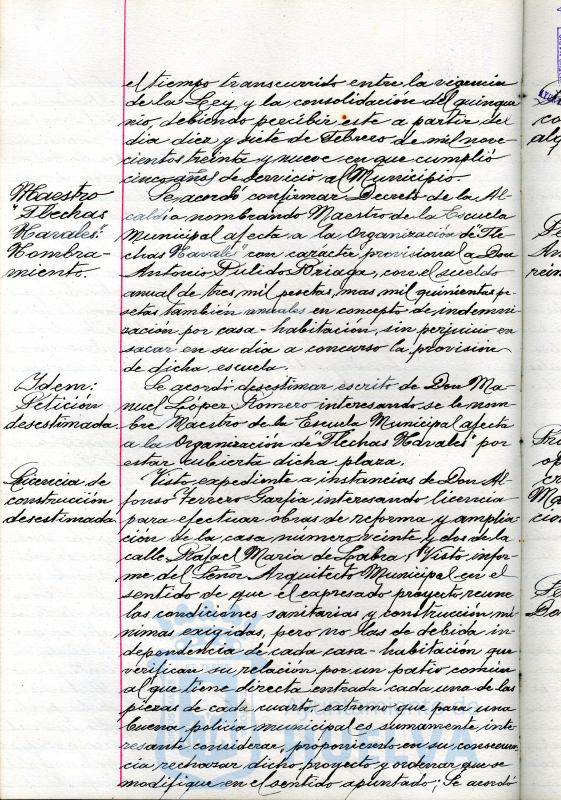 el tiempo transcurrido entre la vigencia
de la Ley y la consolidación del quinque
nio, debiendo percibir este a partir del
dia diez y siete de Febrero de mil nove-
cientos treinta y nueve en que cumplió
cinco años de servicio al Municipio.
Maestro
"Flechas
Navales".-
Nombra-
miento.
Se acordó confirmar Decreto de la Al-
caldía nombrando Maestro de la Escuela
Municipal afecta a la Organización de "Fle
chas Navales" con caracter provisional a Don
Antonio Pulido Driaga, con el sueldo
anual de tres mil pesetas, mas mil quinientas pe-
setas también anuales en concepto de indemni-
zación por casa-habitación, sin perjuicio en
sacar en su dia a concurso la provisión
de dicha escuela.
Idem:
Petición
desestimada.
Se acordó desestimar escrito de Don Ma-
nuel López Romero interesando se le nom-
bre Maestro de la Escuela Municipal afecta
a la Organización de "Flechas Navales" por
estar cubierta dicha plaza.
Licencia de
construcción
desestimada.
Visto expediente a instancias de Don Al-
fonso Ferrero Garfia interesando licencia
para efectuar obras de reforma y amplia
ción de la casa numero veinte y dos de la
calle Rafael Maria de Labra; Visto infor-
me del Señor Arquitecto Municipal en el
sentido de que el expresado proyecto reune
las condiciones sanitarias y construcción mí
nimas exigidas, pero no las de debida in-
dependencia de cada casa-habitación que
verifican su relación por un patio común
al que tiene directa entrada cada una de las
piezas de cada cuarto, extremo que para una
buena policía municipal es sumamente inte
resante considerar, proponiendo en su consecuen
cia, rechazar dicho proyecto y ordenar que se
modifique en el sentido apuntado; Se acordó
HUELVA